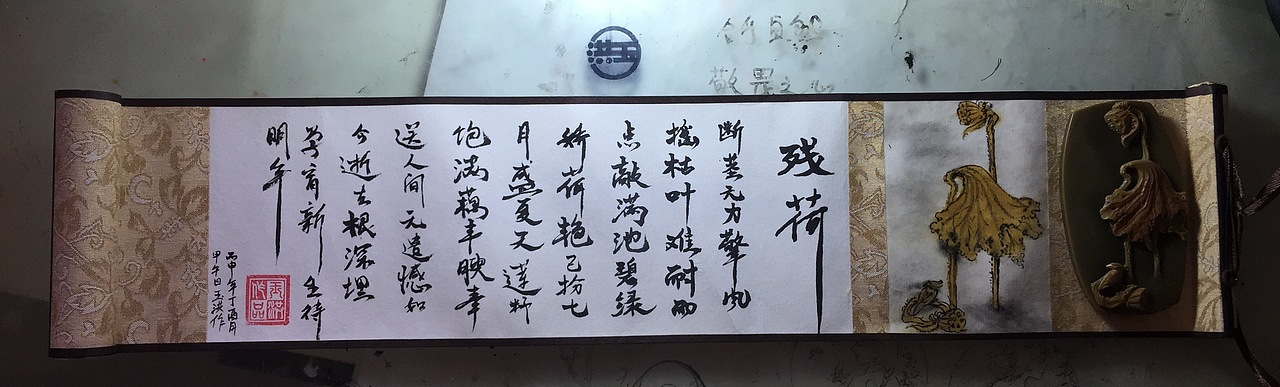 玉洪
敬畏之心
残荷
断茎无力擎风
摇枯叶难耐雨
点敲满池碧绿
娇荷艳已扮七
月盛夏又莲籽
饱满藕丰腴奉
送人间无遗憾如
今逝去根深埋
孕育新生待
明年
丙申年丁酉月
甲午日玉洪作
玉洪作品